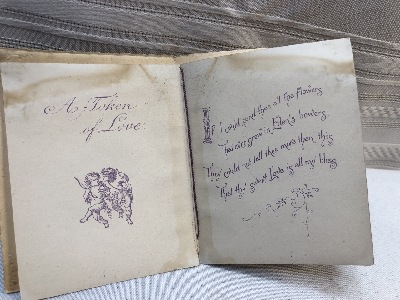 A Token
of Love
If I could send thee all the flowers
That ever grew in Eden's bowers
They could not tell thee more than this
That thy sweet Love is all my bliss